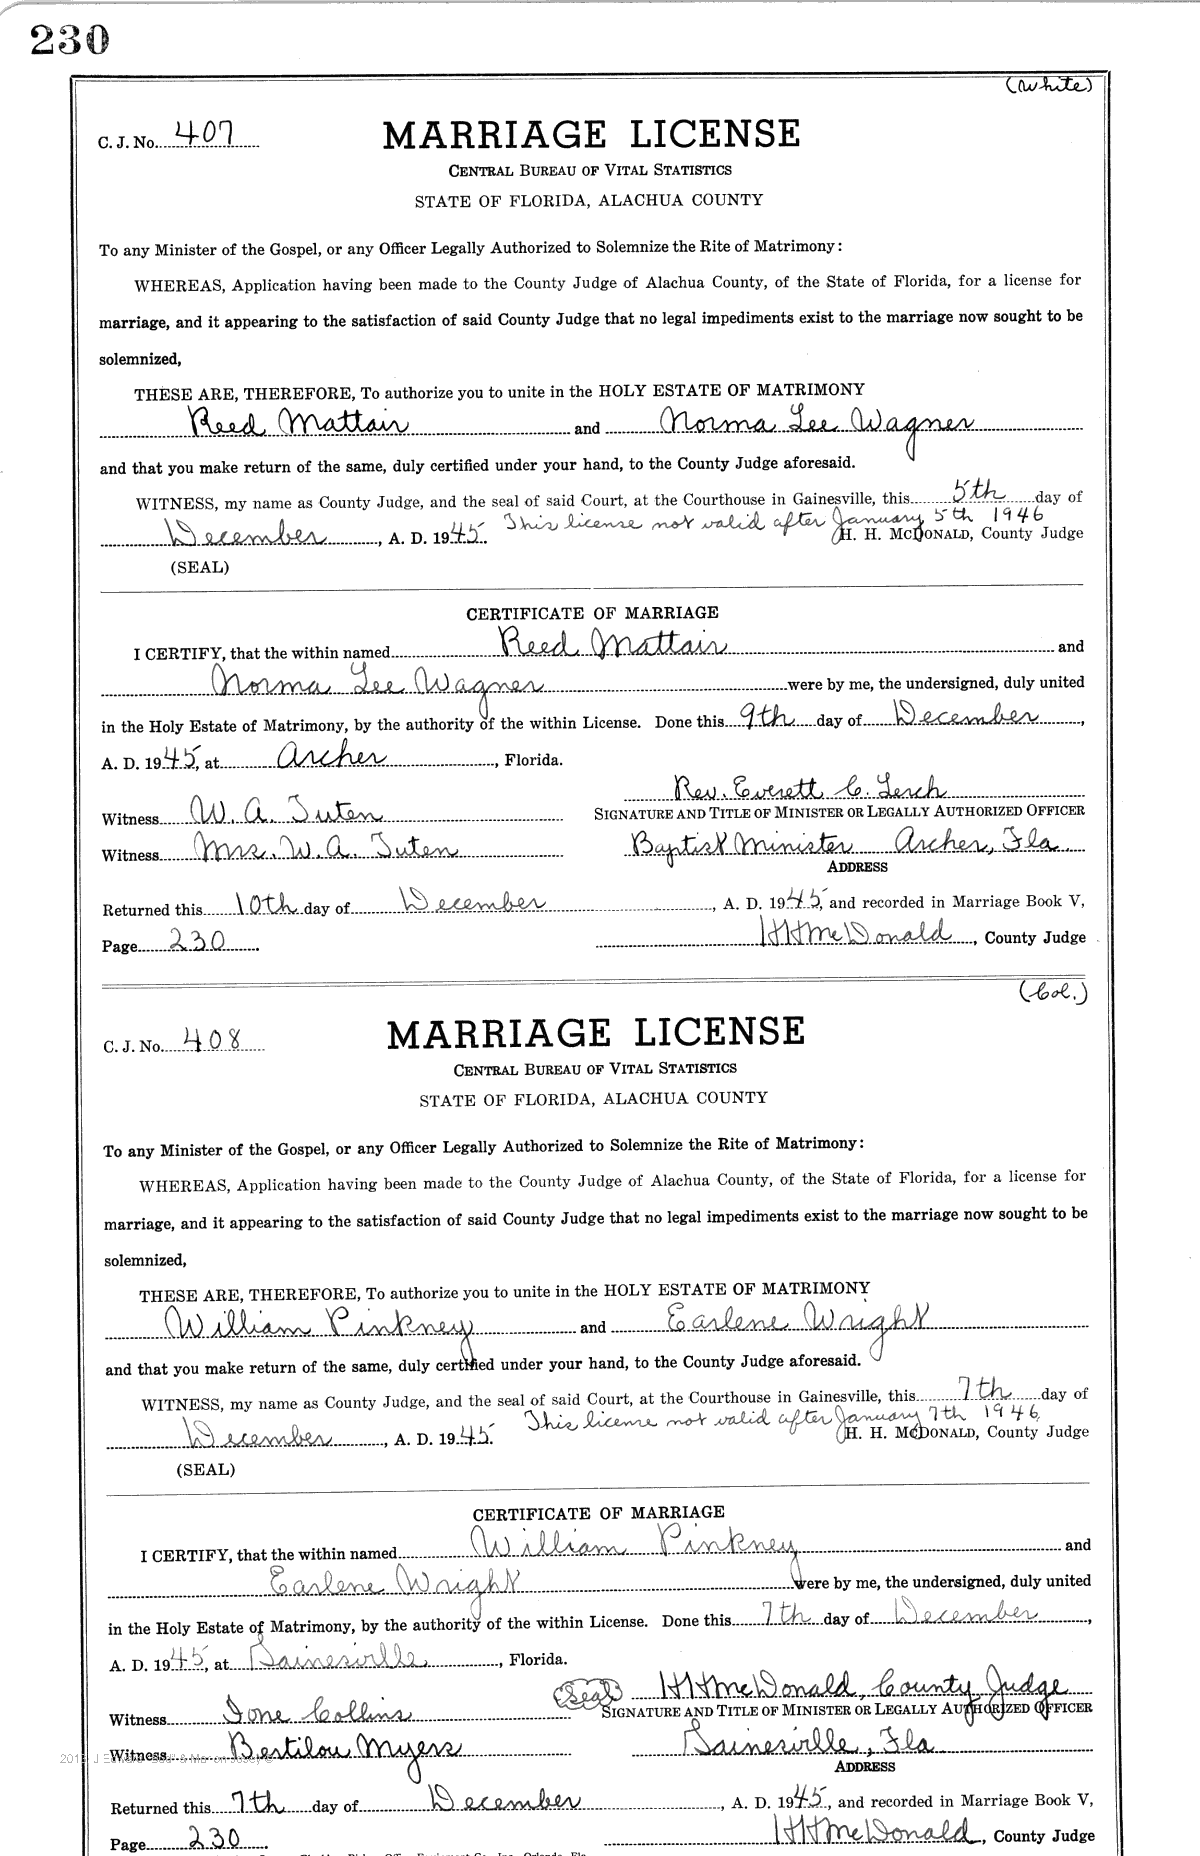 230
(White)
C. J. No. 407
MARRIAGE LICENSE
CENTRAL BUREAU OF VITAL STATISTICS
STATE OF FLORIDA, ALACHUA COUNTY
To any Minister of the Gospel, or any Officer Legally Authorized to Solemnize the Rite of Matrimony:
WHEREAS, Application having been made to the County Judge of Alachua County, of the State of Florida, for a license for
marriage, and it appearing to the satisfaction of said County Judge that no legal impediments exist to the marriage now sought to be
solemnized,
THESE ARE, THEREFORE, To authorize you to unite in the HOLY ESTATE OF MATRIMONY
Reed Mattair and Norma Lee Wagner
and that you make return of the same, duly certified under your hand, to the County Judge aforesaid.
WITNESS, my name as County Judge, and the seal of said Court, at the Courthouse in Gainesville, this 5th day of
This license not valid after January 5th 1946
December, A. D. 1945. H. H. MCDONALD, County Judge
(SEAL)
CERTIFICATE OF MARRIAGE
I CERTIFY, that the within named Reed Mattair and
Norma Lee Wagner were by me, the undersigned, duly united
in the Holy Estate of Matrimony, by the authority of the within License. Done this 9th day of December,
A. D. 1945, at Archer, Florida.
Rev. Everett C. Lerch
Witness W. A. Tuten SIGNATURE AND TITLE OF MINISTER OR LEGALLY AUTHORIZED OFFICER
Witness Mrs. W. A. Tuten Baptist Minister Archer, Fla.
ADDRESS
Returned this 10th day of December, A. D. 1945, and recorded in Marriage Book V,
Page 230 HHMcDonald, County Judge
(Col.)
C. J. No. 408
MARRIAGE LICENSE
CENTRAL BUREAU OF VITAL STATISTICS
STATE OF FLORIDA, ALACHUA COUNTY
To any Minister of the Gospel, or any Officer Legally Authorized to Solemnize the Rite of Matrimony:
WHEREAS, Application having been made to the County Judge of Alachua County, of the State of Florida, for a license for
marriage, and it appearing to the satisfaction of said County Judge that no legal impediments exist to the marriage now sought to be
solemnized,
THESE ARE, THEREFORE, To authorize you to unite in the HOLY ESTATE OF MATRIMONY
William Pinkney and Earlene Wright
and that you make return of the same, duly certified under your hand, to the County Judge aforesaid.
WITNESS, my name as County Judge, and the seal of said Court, at the Courthouse in Gainesville, this 7th day of
This license not valid after January 7th 1946.
December, A. D. 1945. H. H. MCDONALD, County Judge
(SEAL)
CERTIFICATE OF MARRIAGE
I CERTIFY, that the within named William Pinkney and
Earlene Wright were by me, the undersigned, duly united
in the Holy Estate of Matrimony, by the authority of the within License. Done this 7th day of December,
A. D. 1945, at Gainesville, Florida.
(Seal) HHMcDonald, County Judge
Witness Ione Collins SIGNATURE AND TITLE OF MINISTER OR LEGALLY AUTHORIZED OFFICER
Witness Bertilou Myers Gainesville, Fla
ADDRESS
Returned this 7th day of December, A. D. 1945, and recorded in Marriage Book V,
Page 230 HHMcDonald, County Judge